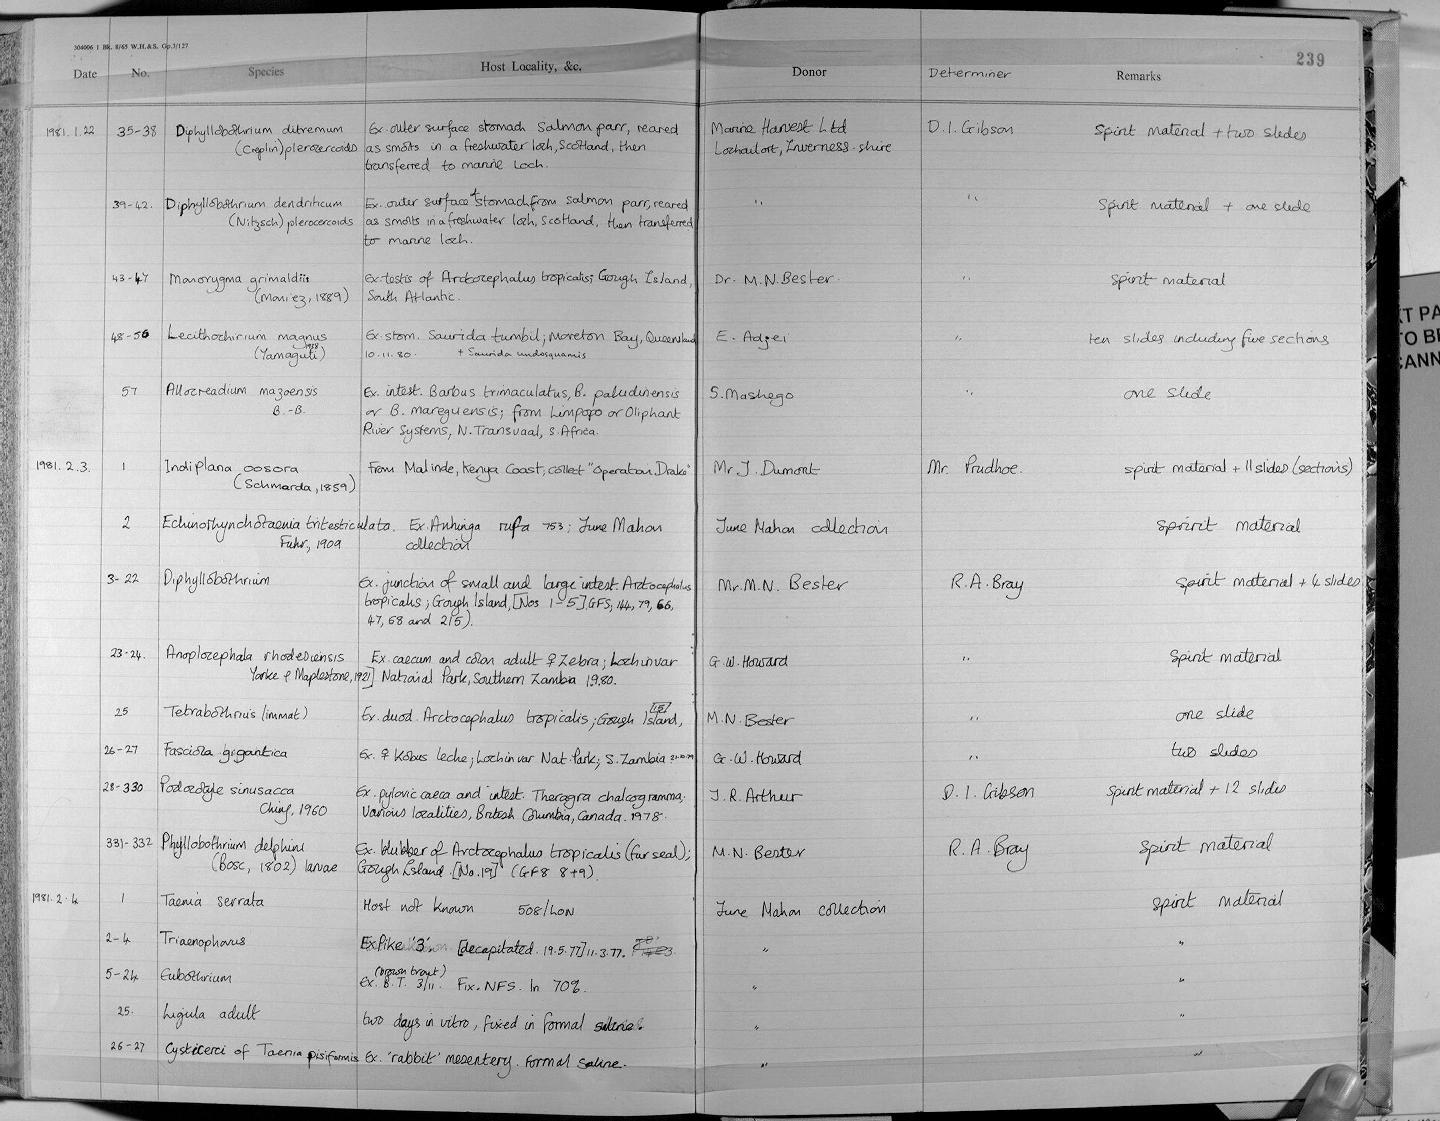 304006 1 Bk. 8/65 W.H.&S. Gp.3/127
239
Date No. Species Host Locality, &c. Donor Determiner Remarks
1981.1.22 35-38 Diphyllobothrium ditremum Ex. outer surface stomach Salmon parr, reared Marine Harvest Ltd D.I. Gibson Spirit material + two slides
(Creplin) plerocercoids as smolts in a freshwater loch, Scotland, then Lochailort, Inverness-shire
transferred to marine Loch.
39-42. Diphyllobothrium dendriticum Ex. outer surface + stomach from Salmon parr, reared " " Spirit material + one slide
(Nitzsch) plerocercoids as smolts in a freshwater loch, Scotland, then transferred
to marine loch.
43-47 Monorygma grimaldii Ex. testis of Arctocephalus tropicalis; Gough Island, Dr. M.N. Bester. " Spirit material
(Moniez, 1889) South Atlantic.
48-56 Lecithochirium magnus Ex. stom. Saurida tumbil; Moreton Bay, Queensland E. Adjei " ten slides including five sections
(Yamaguti) 10.11.80. + Saurida undosquamis
57 Allocreadium mazoensis Ex. intest. Barbus trimaculatus, B. paludinensis S. Mashego " one slide
B.-B. or B. mareguensis; from Limpopo or Oliphant
River Systems, N. Transvaal, S. Africa.
1981.2.3. 1 Indiplana oosora From Malinde, Kenya Coast, collect "Operation Drake" Mr J. Dumont Mr. Prudhoe. spirit material + 11 slides (sections)
(Schmarda, 1859)
2 Echinorhynchotaenia tritesticulata. Ex. Anhinga rufa 753; June Mahon June Mahon collection spirit material
Fuhr, 1909 collection
3-22 Diphyllobothrium Ex. junction of small and large intest. Arctocephalus Mr. M.N. Bester R.A. Bray spirit material + 4 slides
tropicalis; Gough Island, [Nos 1-5] GFS; 144, 79, 66,
47, 68 and 215).
23-24. Anoplocephala rhodesiensis Ex. caecum and colon adult ♀ Zebra; Lochinvar G.W. Howard " Spirit material
Yorke & Maplestone, 1921] National Park, Southern Zambia 1980.
25 Tetrabothrius (immat) Ex. duod. Arctocephalus tropicalis; Gough Island, [15] M.N. Bester " one slide
26-27 Fasciola gigantica Ex. ♀ Kobus leche; Lochinvar Nat. Park; S. Zambia G.W. Howard " two slides
28-330 Podocotyle sinusacca Ex. pyloric caeca and intest. Theragra chalcogramma; J.R. Arthur D.I. Gibson spirit material + 12 slides
Ching, 1960 Various localities, British Columbia, Canada. 1978.
331-332 Phyllobothrium delphini Ex. blubber of Arctocephalus tropicalis (fur seal); M.N. Bester R.A. Bray spirit material
(Bosc, 1802) larvae Gough Island. [No.19] (GF8 8+9).
1981.2.4 1 Taenia serrata Host not known 508/LON June Mahon collection spirit material
2-4 Triaenophorus Ex Pike '3' [decapitated. 19.5.77] 11.3.77. " "
5-24 Eubothrium Ex. B.T. (brown trout) 3/11. Fix. NFS. In 70%. " "
25. Ligula adult two days in vitro, fixed in formal saline. " "
26-27 Cysticerci of Taenia pisiformis Ex. 'rabbit' mesentery. Formal saline. " "